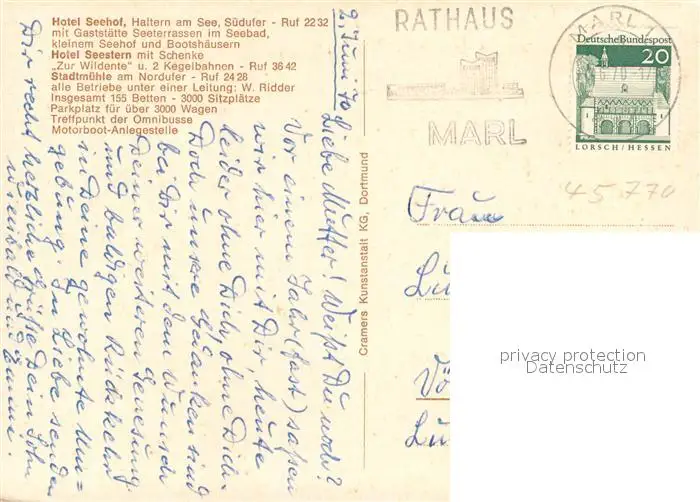 Hotel Seehof, Haltern am See, Südufer - Ruf 22 32
mit Gaststätte Seeterrassen im Seebad,
kleinem Seehof und Bootshäusern
Hotel Seestern mit Schenke
„Zur Wildente" u. 2 Kegelbahnen - Ruf 36 42
Stadtmühle am Nordufer - Ruf 24 28
alle Betriebe unter einer Leitung: W. Ridder
Insgesamt 155 Betten - 3000 Sitzplätze
Parkplatz für über 3000 Wagen
Treffpunkt der Omnibusse
Motorboot-Anlegestelle
2. Juni 70
Liebe Mutter! Weißt Du noch?
Vor einem Jahr (fast) saßen
wir hier mit Dir, heute
leider ohne Dich, ohne Dich.
Doch unsere Gedanken sind
bei Dir mit dem Wunsch
Deiner weiteren Genesung
und baldigen Rückkehr
in Deine gewohnte Um=
gebung. In Liebe senden
Dir recht herzliche Grüße Dein Sohn
und
Cramers Kunstanstalt KG, Dortmund
RATHAUS
MARL
MARL
Deutsche Bundespost
20
LORSCH/HESSEN
45 770
Frau
Lü
Vö
Lü
privacy protection
Datenschutz